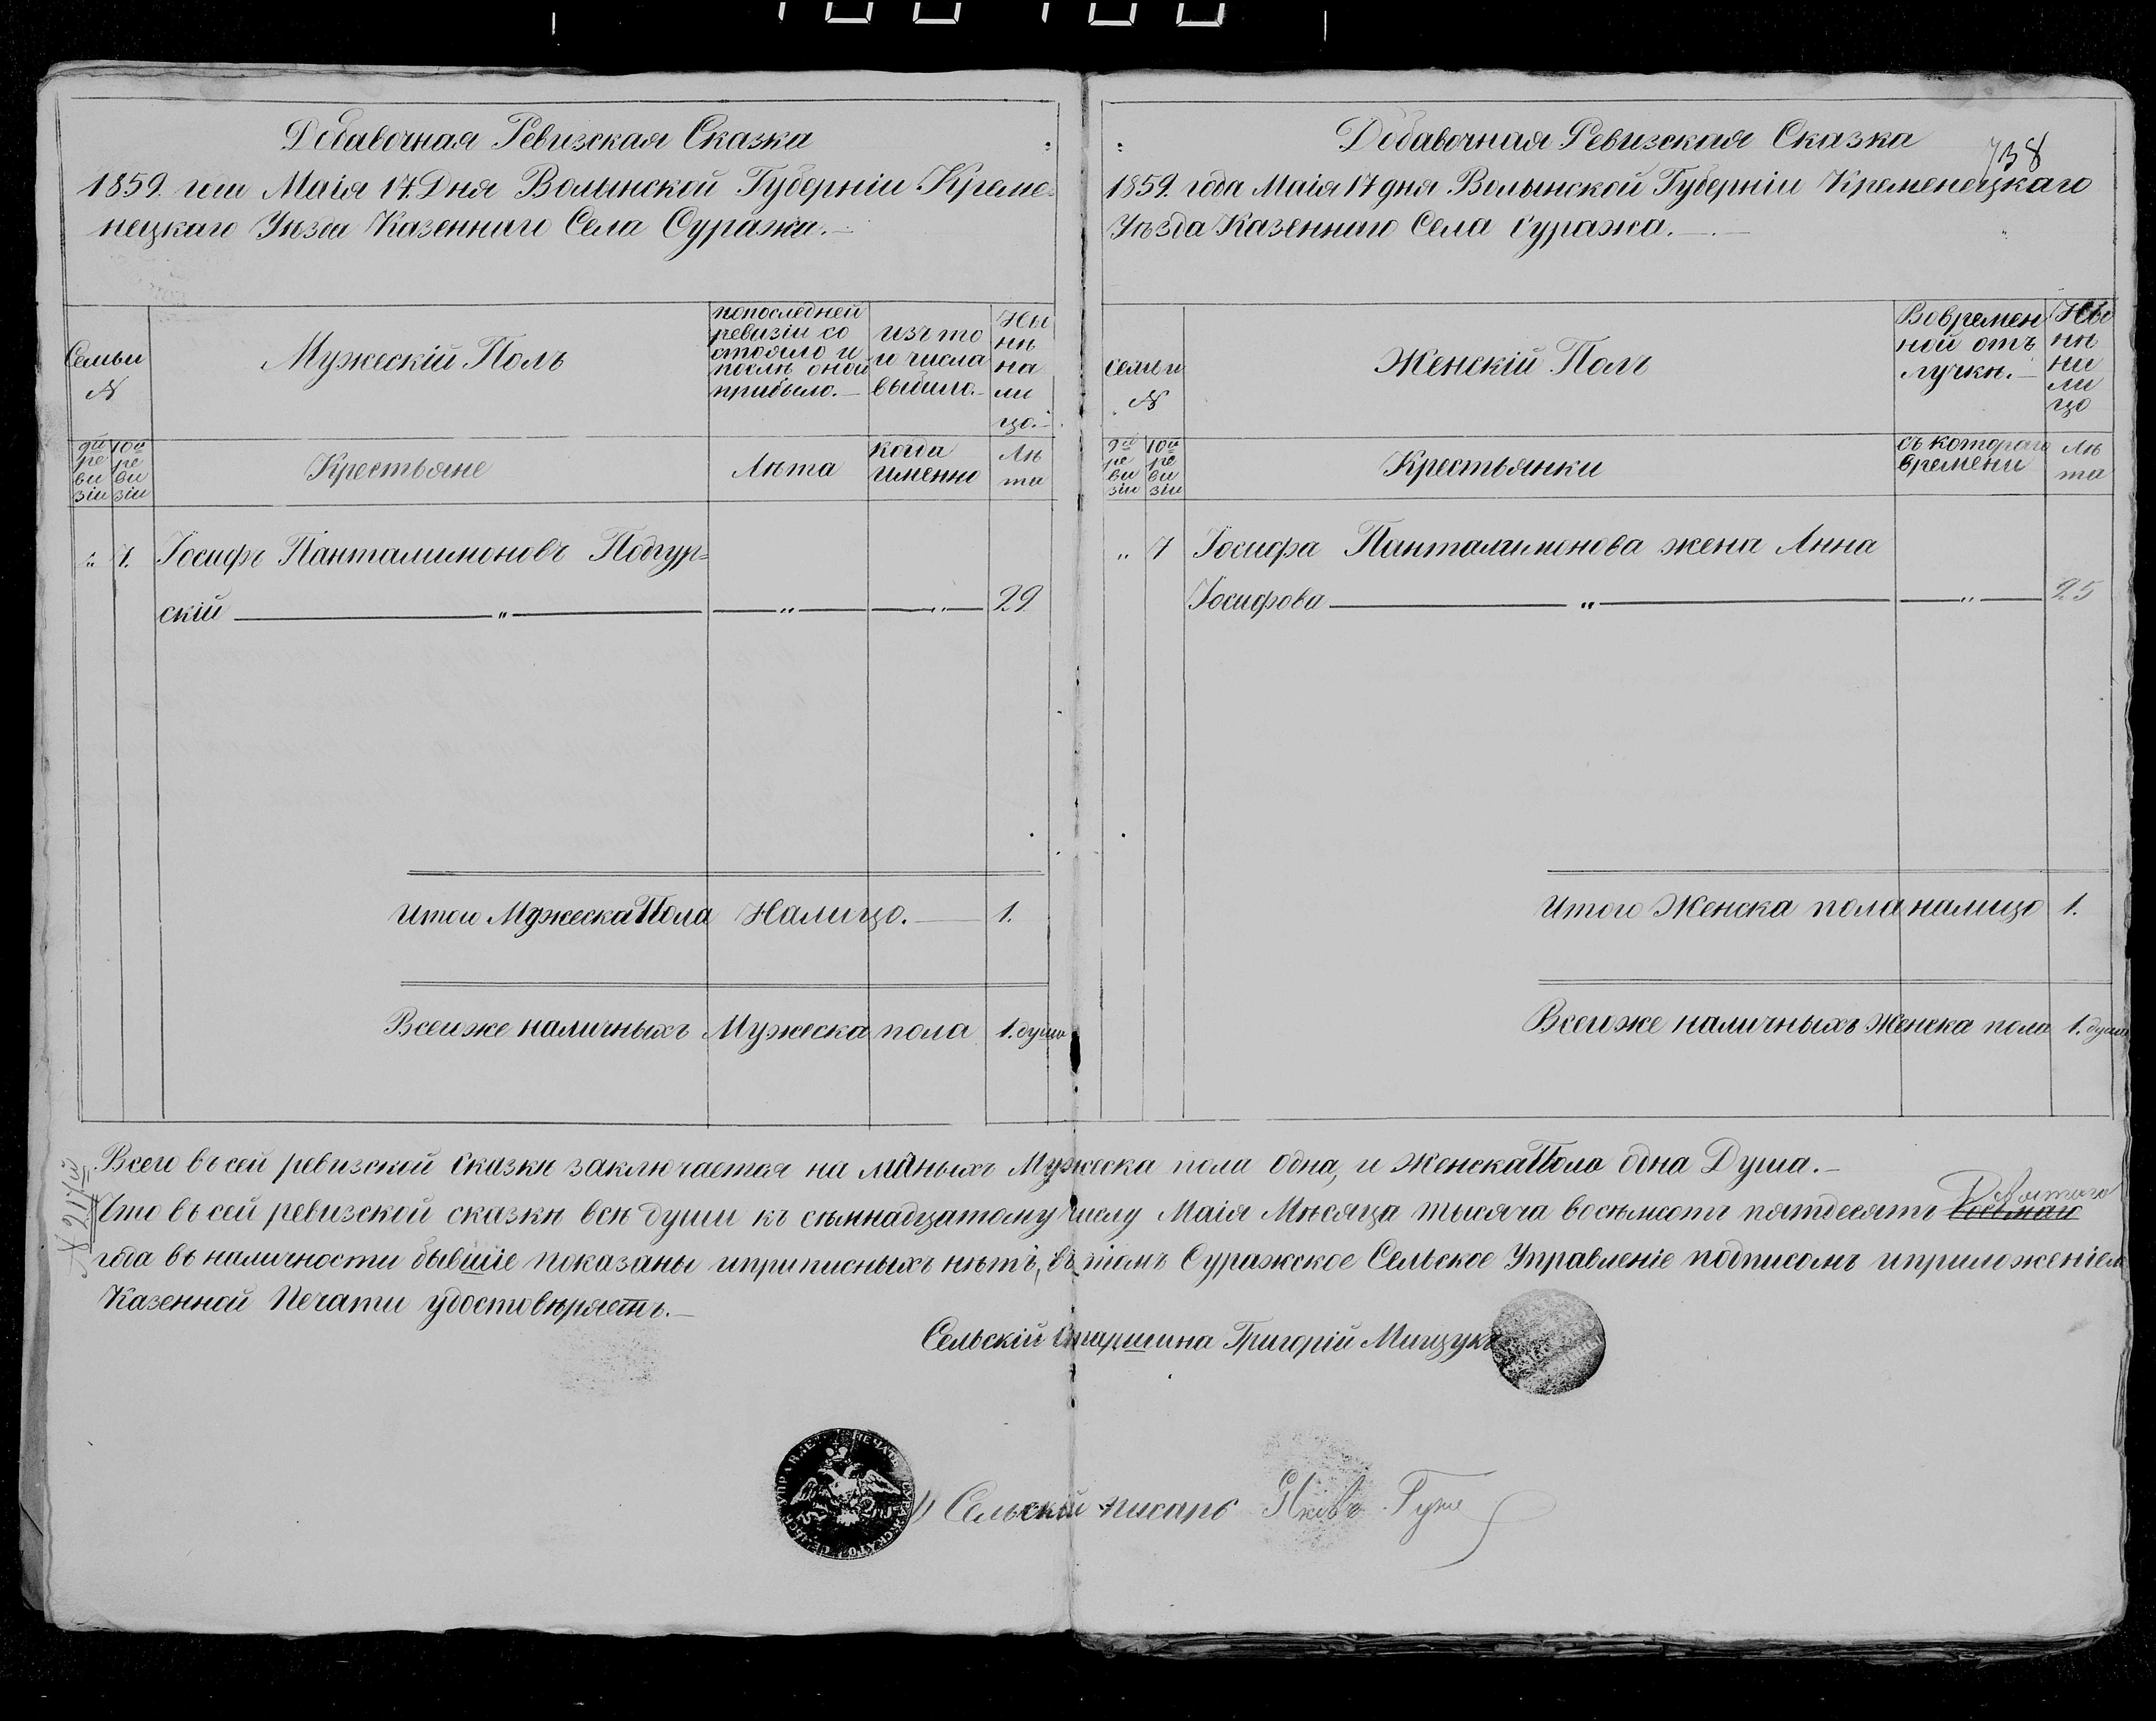 Добавочная Ревизская Сказка
1859. года Маія 17. Дня Волынской Губерніи Креме-
нецкаго Уѣзда Казеннаго Села Суража.
Семьи
№
Мужескій Полъ
попоследней
ревизіи со
стояло и
послѣ оной
прибыло.
изъ то
го числа
выбыло.
Ны
нѣ
на
ли
цо.
9ой
ре
ви
зіи
10ой
ре
ви
зіи
Крестьяне
Лѣта
когда
именно
Лѣ
та
" 7. Іосифъ Панталимоновъ Подгур=
скій " " " 29
Итого Мужеска Пола Налицо. 1.
Всегоже наличныхъ Мужеска пола 1. душа
738
Добавочная Ревизская Сказка
1859. года Маія 17 дня Волынской Губерніи Кременецкаго
Уѣзда Казеннаго Села Суража.
семьи
№
Женскій Полъ
Вовремен
ной отъ
лучкѣ.
Ны
нѣ
на
ли
цо
9ой
ре
ви
зіи
10ой
ре
ви
зіи
Крестьянки
съ котораго
времени
Лѣ
та
" 7 Іосифа Панталимонова жена Анна
Іосифова " " 25
Итого Женска пола налицо 1.
Всегоже наличныхъ Женска пола 1. душа
Всего въ сей ревизской сказкѣ заключается на личныхъ Мужеска пола одна, и Женска Пола одна Душа.
Девятого
Что въ сей ревизской сказкѣ всѣ души къ семнадцатому числу Маія Мѣсяца тысяча восѣмсотъ пятдесятъ восьмаго
года въ наличности бывшіе показаны иприписныхъ нѣтъ, въ томъ Суражское Сельское Управленіе подписомъ иприложеніем
Казенной Печати удостовѣряетъ.
Сельскій Старшина Григорій Мищукъ
Сельскій писарь Яковъ